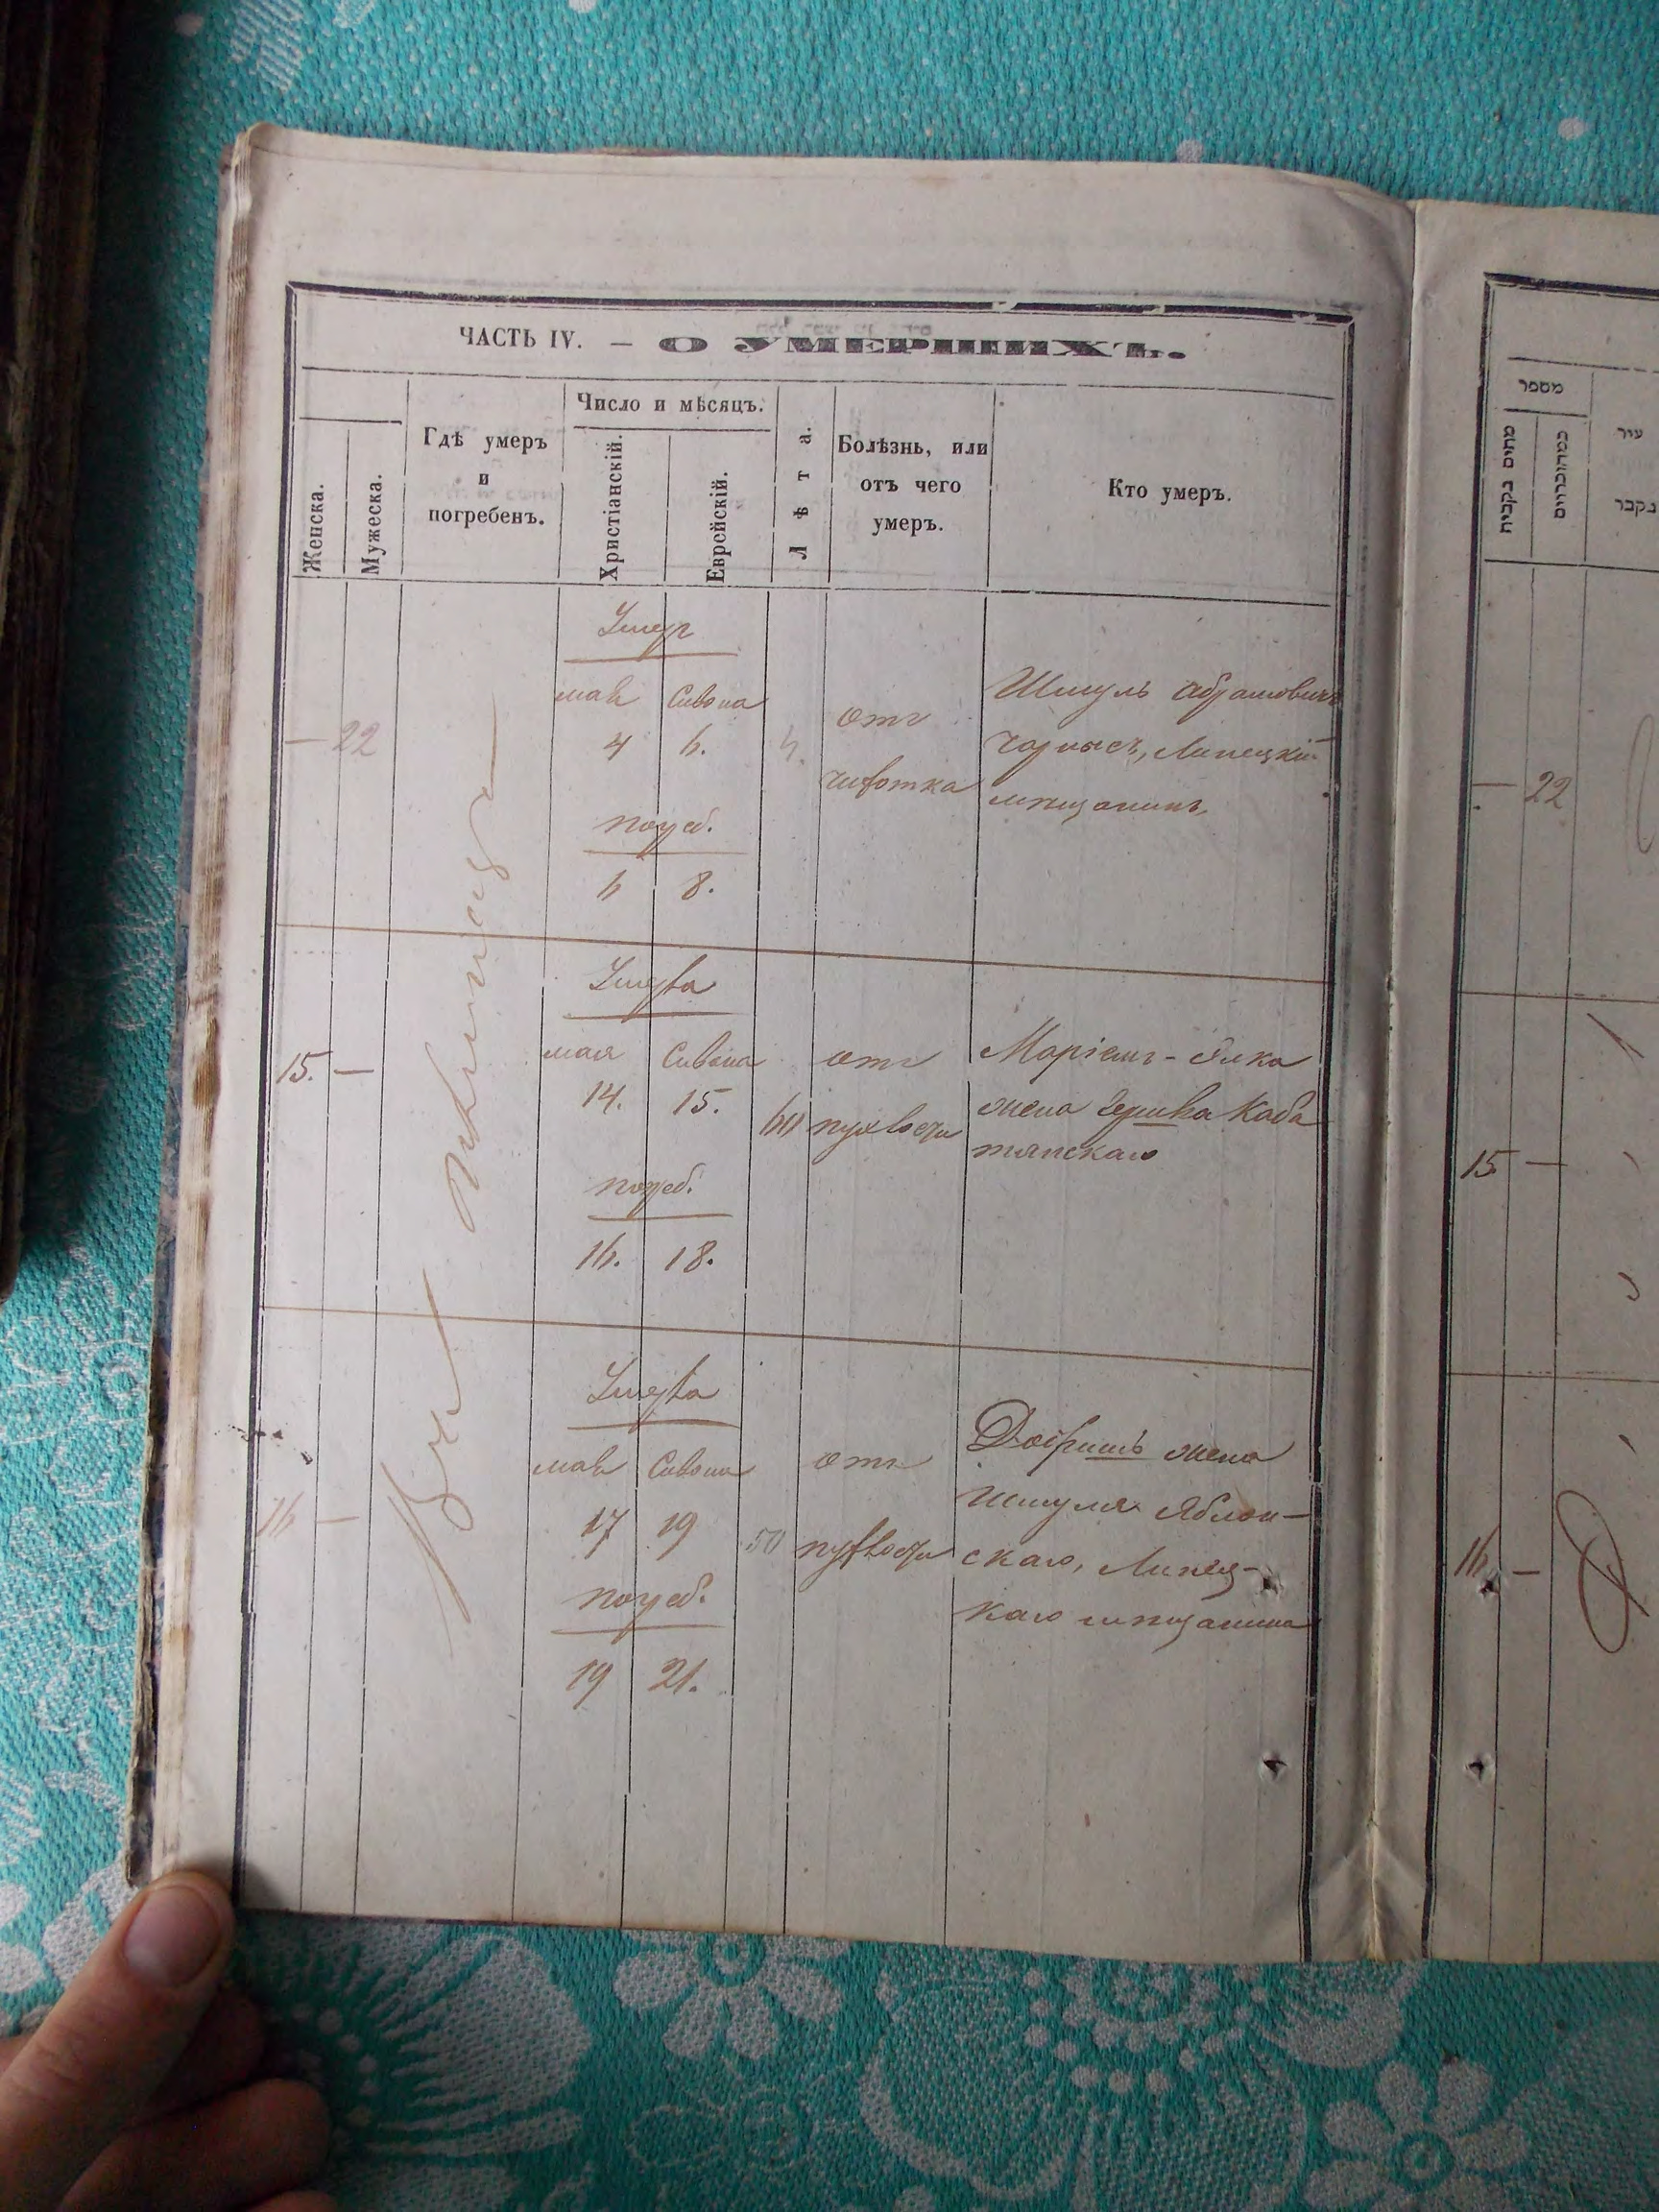 ЧАСТЬ IV. — О УМЕРШИХЪ.
Женска.
Мужеска.
Гдѣ умеръ
и
погребенъ.
Число и мѣсяцъ.
Христіанскій.
Еврейскій.
Лѣта.
Болѣзнь, или
отъ чего
умеръ.
Кто умеръ.
— 22
Умеръ
мая Сивона
4 6.
погреб.
6 8.
отъ
Шмуль Абрамовичъ
Липецкій
мѣщанинъ
15. —
Умерла
мая Сивона
14. 15.
погреб.
16. 18.
60
отъ
Маріемъ-Элка
жена Гершка Каба
тянскаго
16 —
Умерла
мая Сивона
17 19
погреб.
19 21.
50
отъ
Добришъ жена
Шмуля Яблон-
скаго, Липец-
каго мѣщанина
Въ
מספר
עיר
נקבר
— 22
15 —
16 —